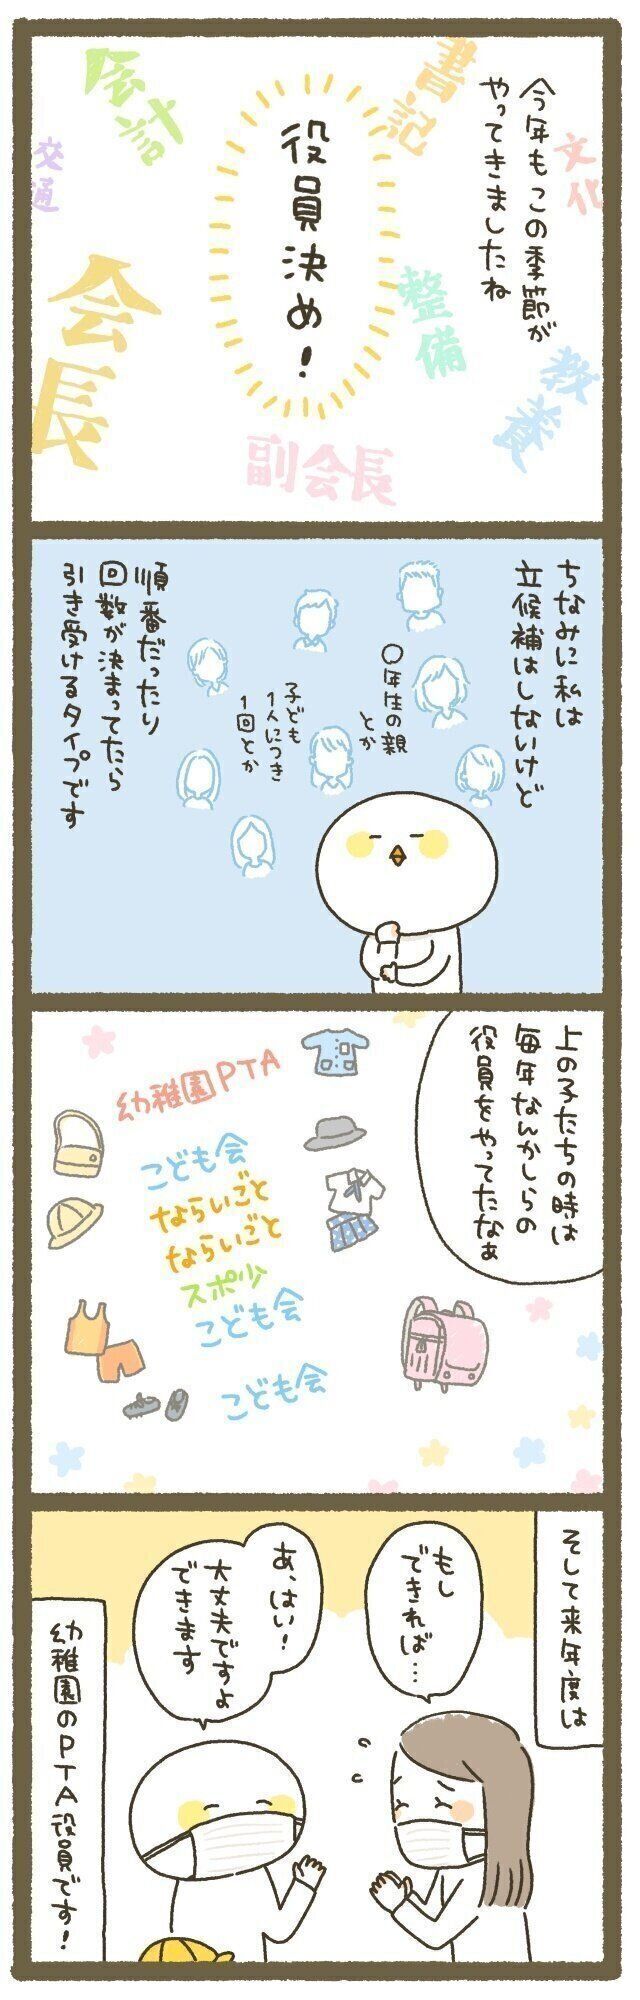 今年もこの季節が
やってきましたね
役員決め！
会計
書記
文化
交通
会長
整備
教養
副会長
ちなみに私は
立候補はしないけど
〇年生の親
とか
子ども
1人につき
1回とか
順番だったり
回数が決まってたら
引き受けるタイプです
上の子たちの時は
毎年なんかしらの
役員をやってたなぁ
幼稚園PTA
こども会
ならいごと
ならいごと
スポ少
こども会
こども会
そして来年度は
もし
できれば…
あ、はい！
大丈夫ですよ
できます
幼稚園のPTA役員です！